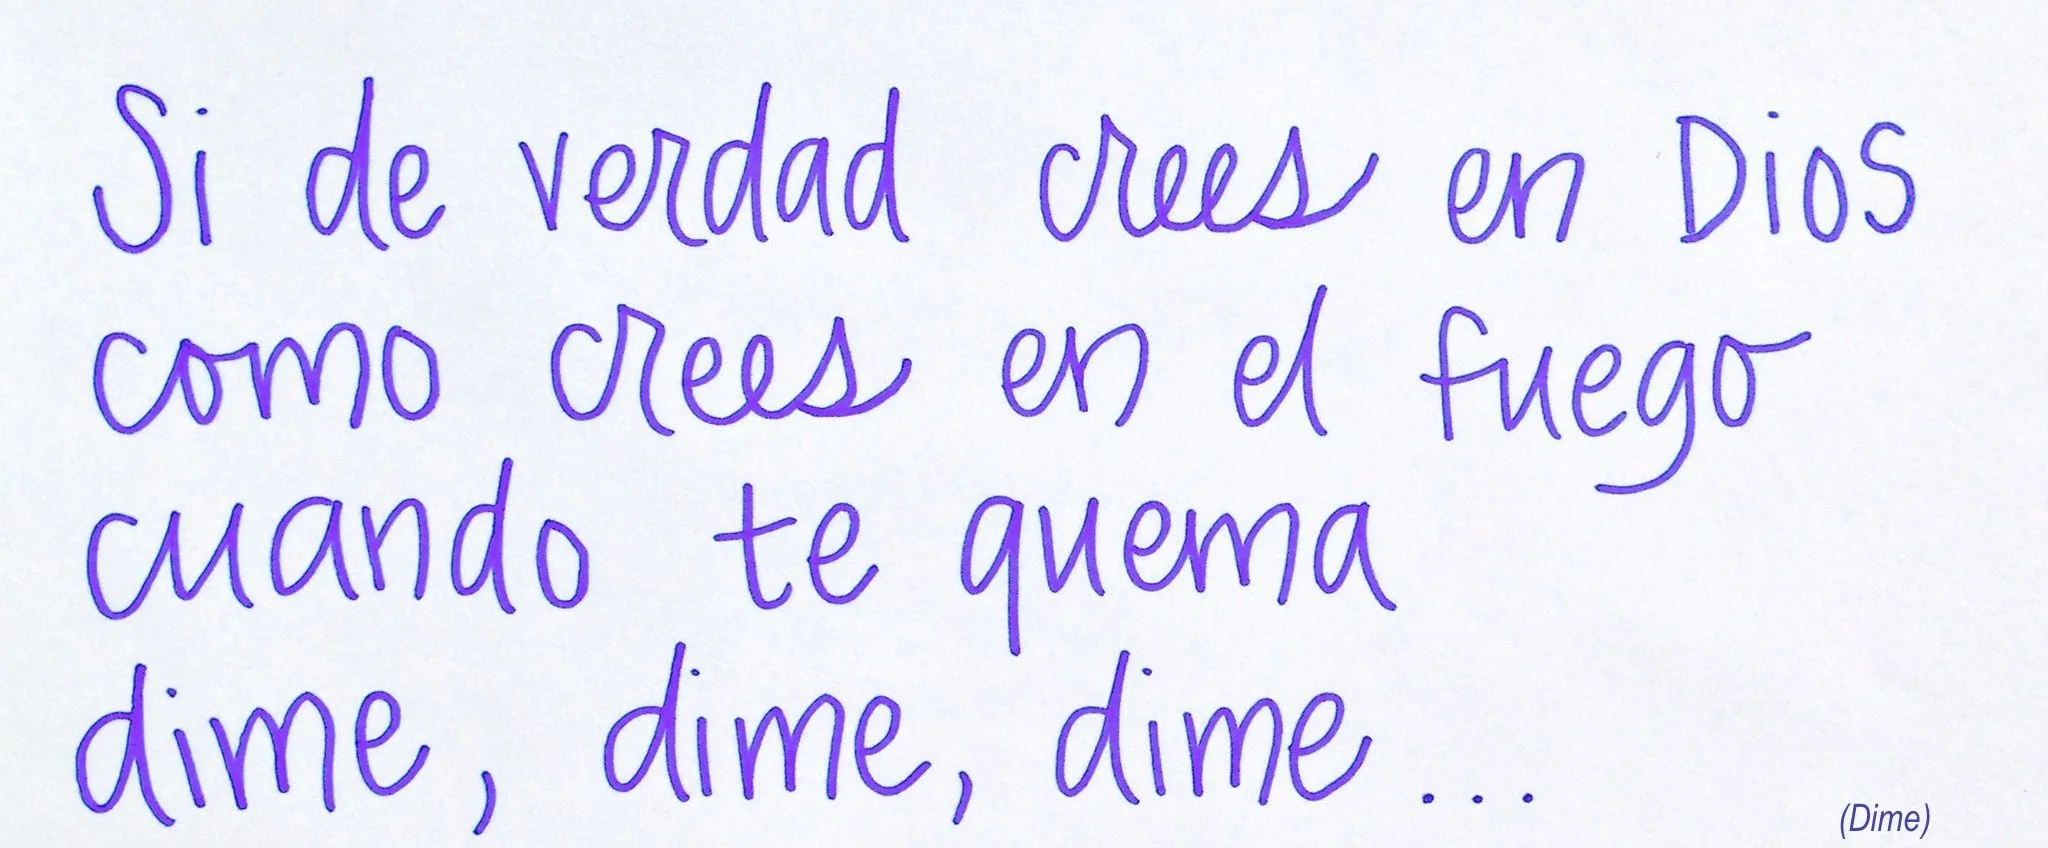 Si de verdad crees en Dios
como crees en el fuego
cuando te quema
dime, dime, dime...
(Dime)